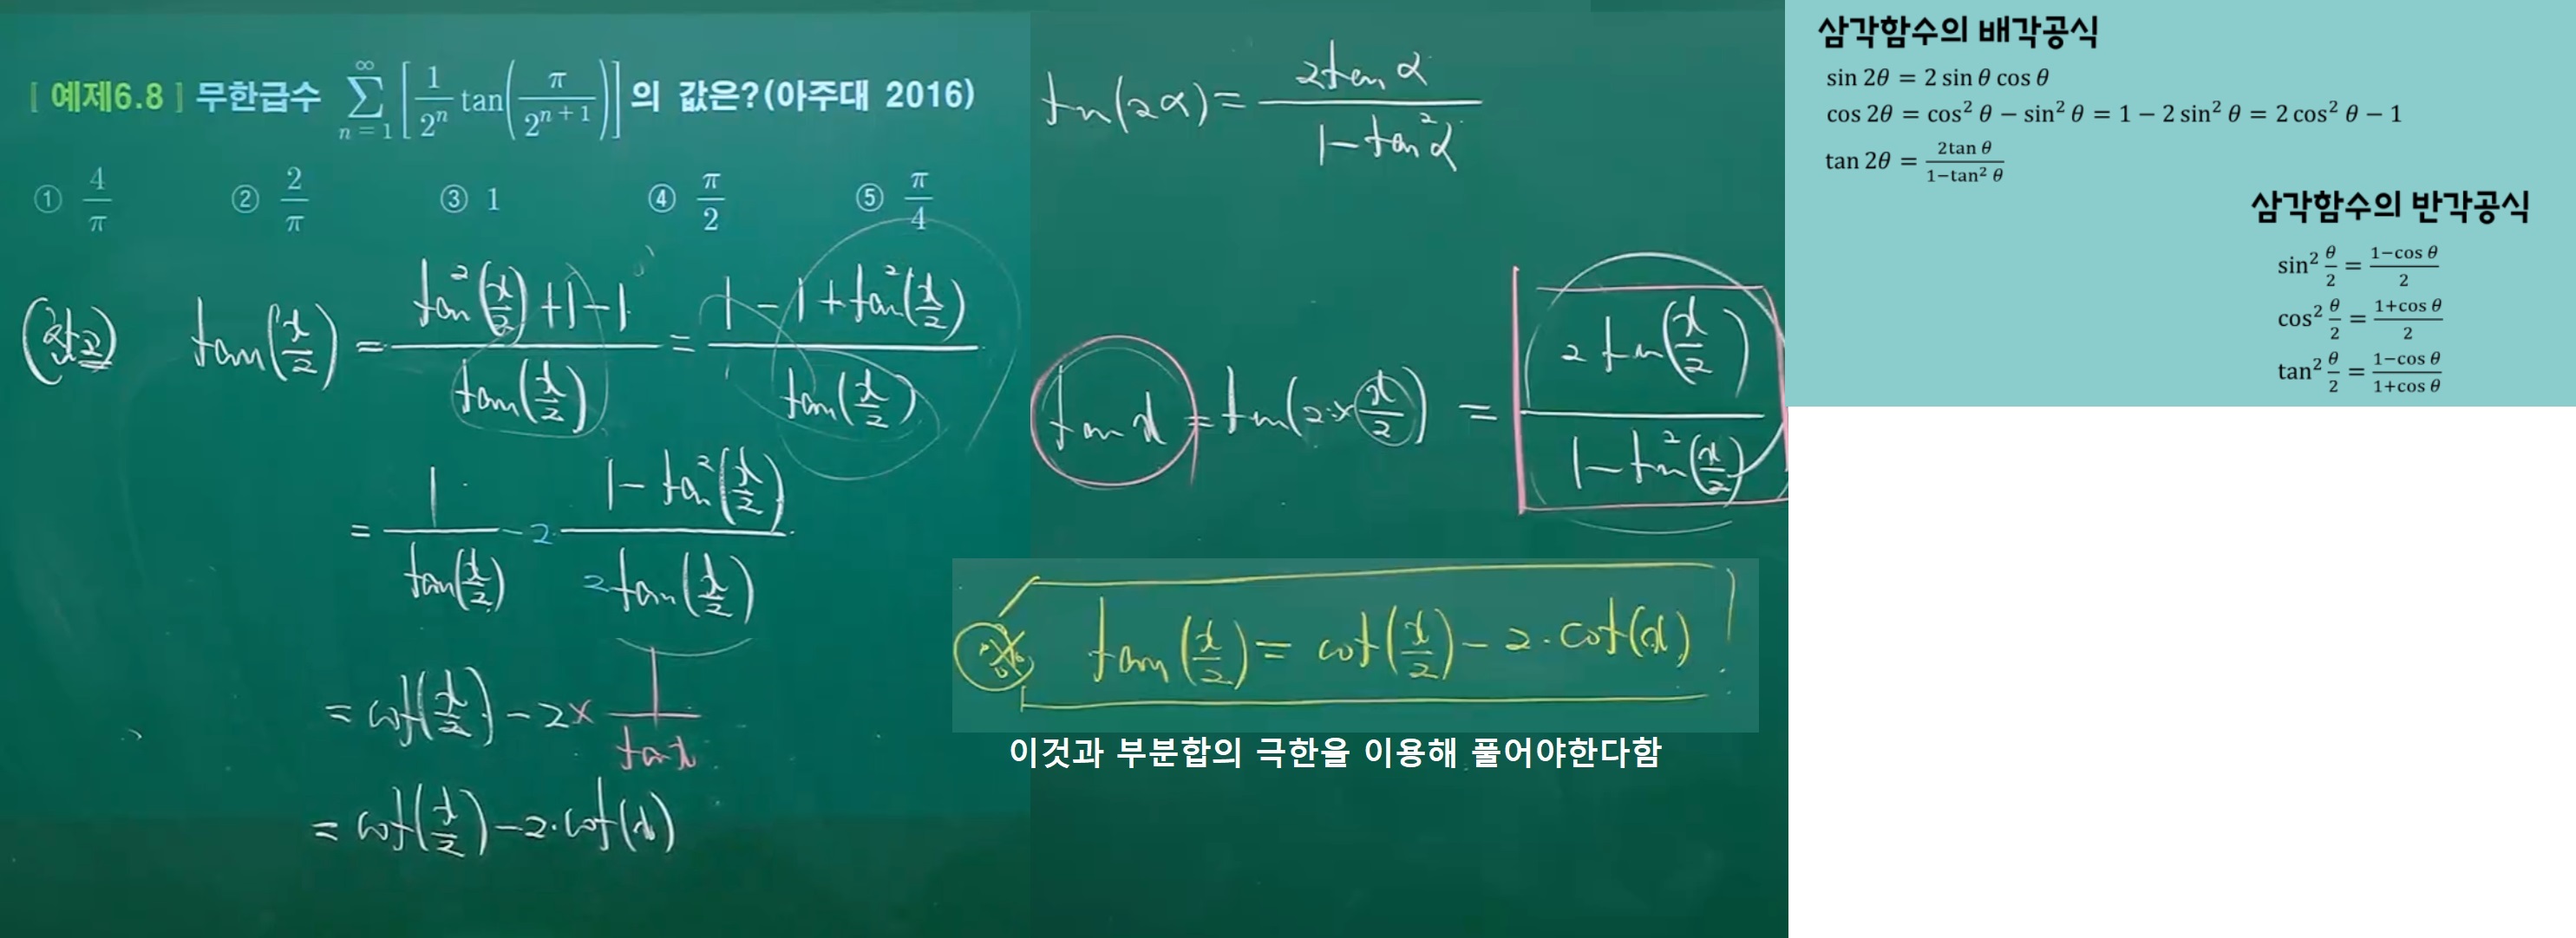 [ 예제6.8 ] 무한급수 \sum_{n=1}^{\infty} \left[ \frac{1}{2^n} \tan\left( \frac{\pi}{2^{n+1}} \right) \right] 의 값은?(아주대 2016)
① \frac{4}{\pi} ② \frac{2}{\pi} ③ 1 ④ \frac{\pi}{2} ⑤ \frac{\pi}{4}
\tan\left(\frac{x}{2}\right) = \frac{\tan^2\left(\frac{x}{2}\right)+1-1}{\tan\left(\frac{x}{2}\right)} = \frac{1-1+\tan^2\left(\frac{x}{2}\right)}{\tan\left(\frac{x}{2}\right)}
= \frac{1}{\tan\left(\frac{x}{2}\right)} - 2 \cdot \frac{1-\tan^2\left(\frac{x}{2}\right)}{2\tan\left(\frac{x}{2}\right)}
= \cot\left(\frac{x}{2}\right) - 2 \times \frac{1}{\tan x}
= \cot\left(\frac{x}{2}\right) - 2 \cdot \cot(x)
\tan(2α) = \frac{2\tan α}{1-\tan^2 α}
\tan x = \tan\left(2 \times \frac{x}{2}\right) = \frac{2\tan\left(\frac{x}{2}\right)}{1-\tan^2\left(\frac{x}{2}\right)}
\tan\left(\frac{x}{2}\right) = \cot\left(\frac{x}{2}\right) - 2 \cdot \cot(x)
이것과 부분합의 극한을 이용해 풀어야한다함
삼각함수의 배각공식
sin 2θ = 2 sin θ cos θ
cos 2θ = cos² θ − sin² θ = 1 − 2 sin² θ = 2 cos² θ − 1
tan 2θ = \frac{2tan θ}{1−tan² θ}
삼각함수의 반각공식
sin² \frac{θ}{2} = \frac{1−cos θ}{2}
cos² \frac{θ}{2} = \frac{1+cos θ}{2}
tan² \frac{θ}{2} = \frac{1−cos θ}{1+cos θ}